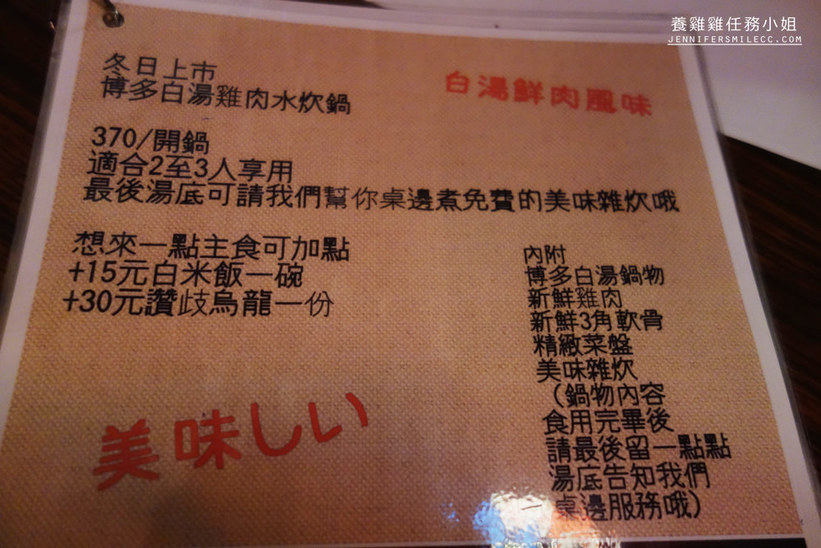 養雞雞任務小姐
JENNIFERSMILECC.COM
冬日上市
博多白湯雞肉水炊鍋
白湯鮮肉風味
370/開鍋
適合2至3人享用
最後湯底可請我們幫你桌邊煮免費的美味雜炊哦
想來一點主食可加點
+15元白米飯一碗
+30元讚歧烏龍一份
內附
博多白湯鍋物
新鮮雞肉
新鮮3角軟骨
精緻菜盤
美味雜炊
(鍋物內容
食用完畢後
請最後留一點點
湯底告知我們
桌邊服務哦)
美味しい